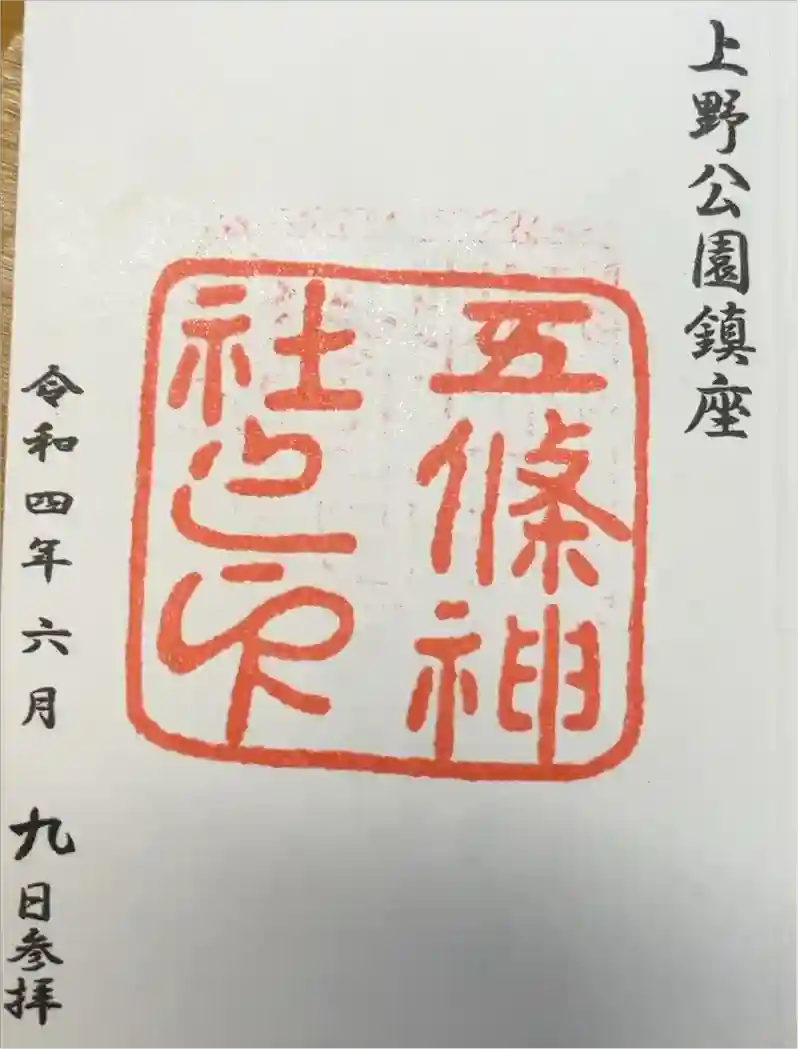 上野公園鎮座
五條神
社之印
令和四年六月 九日参拝